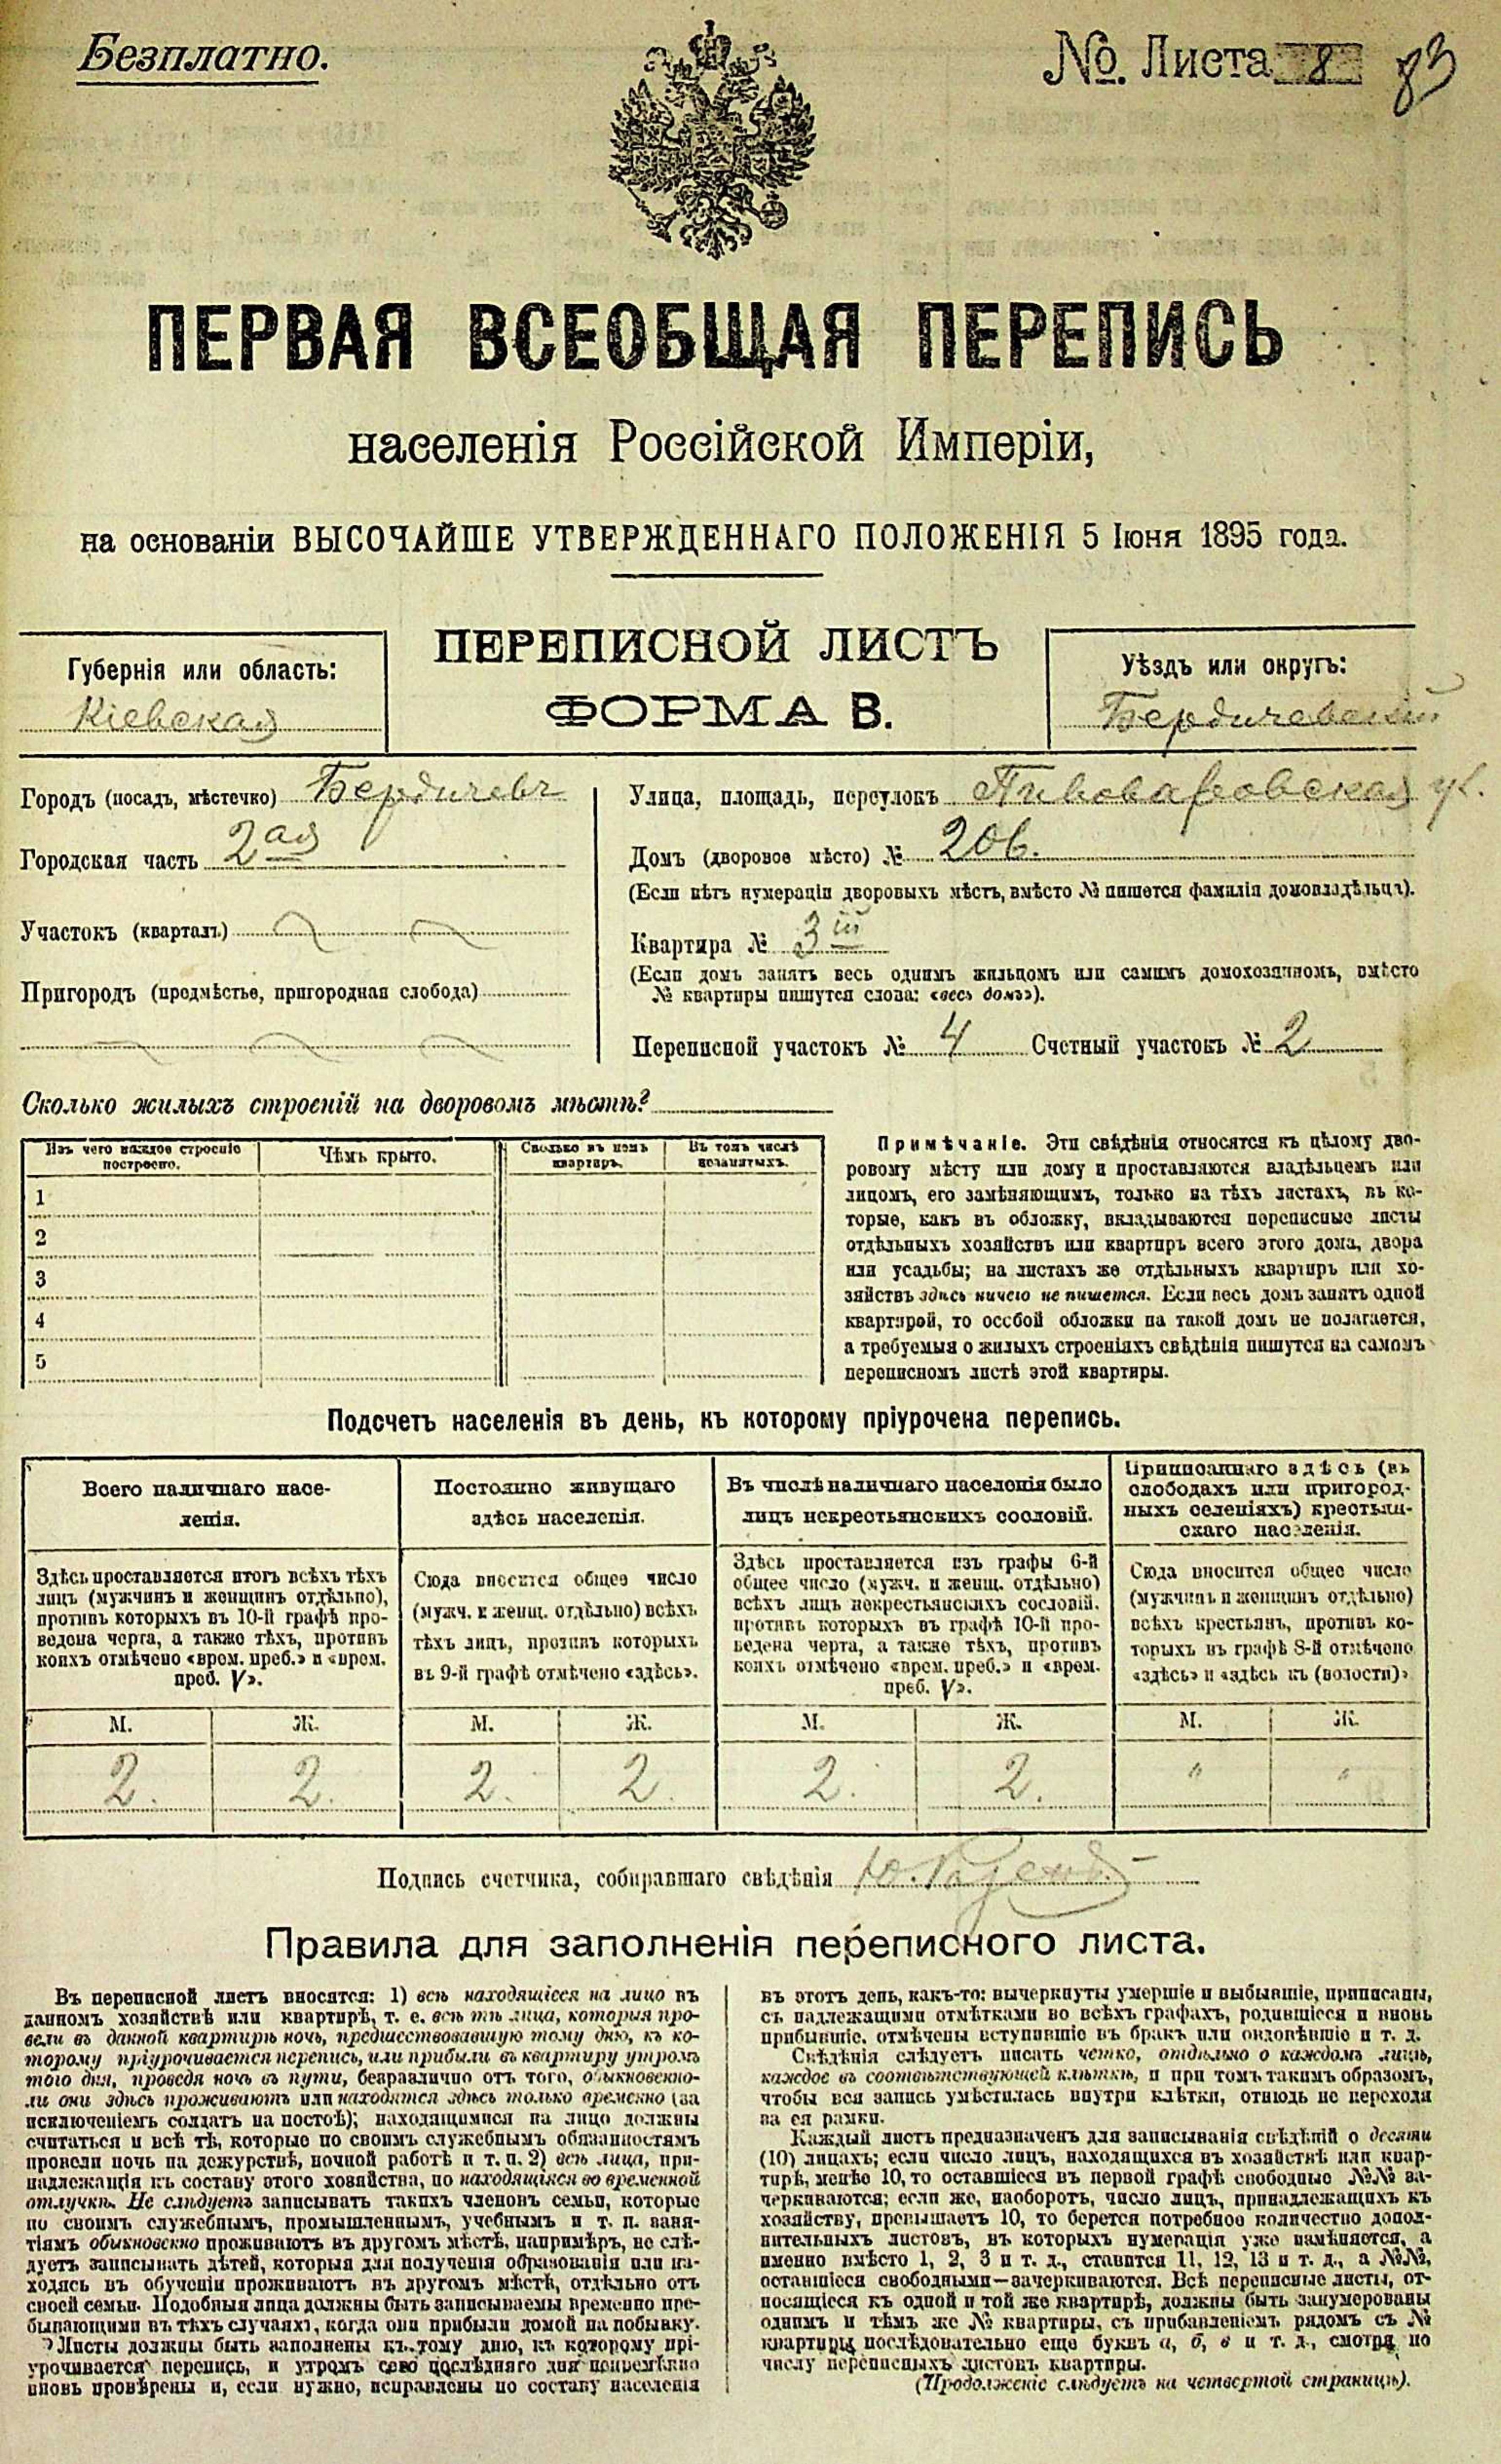 Безплатно.
№. Листа 8 83
ПЕРВАЯ ВСЕОБЩАЯ ПЕРЕПИСЬ
населенія Россійской Имперіи,
на основаніи ВЫСОЧАЙШЕ УТВЕРЖДЕННАГО ПОЛОЖЕНІЯ 5 Іюня 1895 года.
ПЕРЕПИСНОЙ ЛИСТЪ
ФОРМА В.
Губернія или область:
Кіевская
Уѣздъ или округъ:
Бердичевскій
Городъ (посадъ, мѣстечко) Бердичевъ
Городская часть 2ая
Участокъ (кварталъ)
Пригородъ (предмѣстье, пригородная слобода)
Улица, площадь, переулокъ Пивоваровская ул.
Домъ (дворовое мѣсто) № 206.
(Если нѣтъ нумераціи дворовыхъ мѣстъ, вмѣсто № пишется фамилія домовладѣльца).
Квартира № 3 ій
(Если домъ занятъ весь однимъ жильцомъ или самимъ домохозяиномъ, вмѣсто
№ квартиры пишутся слова: «весь домъ»).
Переписной участокъ № 4 Счетный участокъ № 2
Сколько жилыхъ строеній на дворовомъ мѣстѣ?
Изъ чего каждое строеніе построено.
Чѣмъ крыто.
Сколько въ немъ квартиръ.
Въ томъ числѣ незанятыхъ.
1
2
3
4
5
Примѣчаніе. Эти свѣдѣнія относятся къ цѣлому дво-
ровому мѣсту или дому и проставляются владѣльцемъ или
лицомъ, его замѣняющимъ, только на тѣхъ листахъ, въ ко-
торые, какъ въ обложку, вкладываются переписные листы
отдѣльныхъ хозяйствъ или квартиръ всего этого дома, двора
или усадьбы; на листахъ же отдѣльныхъ квартиръ или хо-
зяйствъ здѣсь ничего не пишется. Если весь домъ занятъ одной
квартирой, то особой обложки на такой домъ не полагается,
а требуемыя о жилыхъ строеніяхъ свѣдѣнія пишутся на самомъ
переписномъ листѣ этой квартиры.
Подсчетъ населенія въ день, къ которому пріурочена перепись.
Всего наличнаго насе-
ленія.
Здѣсь проставляется итогъ всѣхъ тѣхъ
лицъ (мужчинъ и женщинъ отдѣльно),
противъ которыхъ въ 10-й графѣ про-
ведена черта, а также тѣхъ, противъ
коихъ отмѣчено «врем. преб.» и «врем.
преб. V».
Постоянно живущаго
здѣсь населенія.
Сюда вносится общее число
(мужч. и женщ. отдѣльно) всѣхъ
тѣхъ лицъ, противъ которыхъ
въ 9-й графѣ отмѣчено «здѣсь».
Въ числѣ наличнаго населенія было
лицъ некрестьянскихъ сословій.
Здѣсь проставляется изъ графы 6-й
общее число (мужч. и женщ. отдѣльно)
всѣхъ лицъ некрестьянскихъ сословій,
противъ которыхъ въ графѣ 10-й про-
ведена черта, а также тѣхъ, противъ
коихъ отмѣчено «врем. преб.» и «врем.
преб. V».
Приписаннаго здѣсь (въ
слободахъ или пригород-
ныхъ селеніяхъ) крестьян-
скаго населенія.
Сюда вносится общее число
(мужчинъ и женщинъ отдѣльно)
всѣхъ крестьянъ, противъ ко-
торыхъ въ графѣ 8-й отмѣчено
«здѣсь» и «здѣсь къ (волости)»
М. Ж. М. Ж. М. Ж. М. Ж.
2. 2. 2. 2. 2. 2. " "
Подпись счетчика, собиравшаго свѣдѣнія
Правила для заполненія переписного листа.
Въ переписной листъ вносятся: 1) всѣ находящіеся на лицо въ
данномъ хозяйствѣ или квартирѣ, т. е. всѣ тѣ лица, которыя про-
вели въ данной квартирѣ ночь, предшествовавшую тому дню, къ ко-
торому пріурочивается перепись, или прибыли въ квартиру утромъ
того дня, проведя ночь въ пути, безразлично отъ того, обыкновенно-
ли они здѣсь проживаютъ или находятся здѣсь только временно (за
исключеніемъ солдатъ на постоѣ); находящимися на лицо должны
считаться и всѣ тѣ, которые по своимъ служебнымъ обязанностямъ
провели ночь на дежурствѣ, ночной работѣ и т. п. 2) всѣ лица, при-
надлежащія къ составу этого хозяйства, но находящіяся во временной
отлучкѣ. Не слѣдуетъ записывать такихъ членовъ семьи, которые
по своимъ служебнымъ, промышленнымъ, учебнымъ и т. п. заня-
тіямъ обыкновенно проживаютъ въ другомъ мѣстѣ, напримѣръ, не слѣ-
дуетъ записывать дѣтей, которыя для полученія образованія или на-
ходясь въ обученіи проживаютъ въ другомъ мѣстѣ, отдѣльно отъ
своей семьи. Подобныя лица должны быть записываемы временно пре-
бывающими въ тѣхъ случаяхъ, когда они прибыли домой на побывку.
Листы должны быть заполнены къ тому дню, къ которому прі-
урочивается перепись, и утромъ сего послѣдняго дня непремѣнно
вновь провѣрены и, если нужно, исправлены по составу населенія
въ этотъ день, какъ-то: вычеркнуты умершіе и выбывшіе, приписаны,
съ надлежащими отмѣтками во всѣхъ графахъ, родившіеся и вновь
прибывшіе, отмѣчены вступившіе въ бракъ или овдовѣвшіе и т. д.
Свѣдѣнія слѣдуетъ писать четко, отдѣльно о каждомъ лицѣ,
каждое въ соотвѣтствующей клѣткѣ, и при томъ такимъ образомъ,
чтобы вся запись умѣстилась внутри клѣтки, отнюдь не переходя
за ея рамки.
Каждый листъ предназначенъ для записыванія свѣдѣній о десяти
(10) лицахъ; если число лицъ, находящихся въ хозяйствѣ или квар-
тирѣ, менѣе 10, то оставшіеся въ первой графѣ свободные №№ за-
черкиваются; если же, наоборотъ, число лицъ, принадлежащихъ къ
хозяйству, превышаетъ 10, то берется потребное количество допол-
нительныхъ листовъ, въ которыхъ нумерація уже измѣняется, а
именно вмѣсто 1, 2, 3 и т. д., ставится 11, 12, 13 и т. д., а №№,
оставшіеся свободными—зачеркиваются. Всѣ переписные листы, от-
носящіеся къ одной и той же квартирѣ, должны быть занумерованы
однимъ и тѣмъ же № квартиры, съ прибавленіемъ рядомъ съ №
квартиры послѣдовательно еще буквъ а, б, в и т. д., смотря по
числу переписныхъ листовъ квартиры.
(Продолженіе слѣдуетъ на четвертой страницѣ).